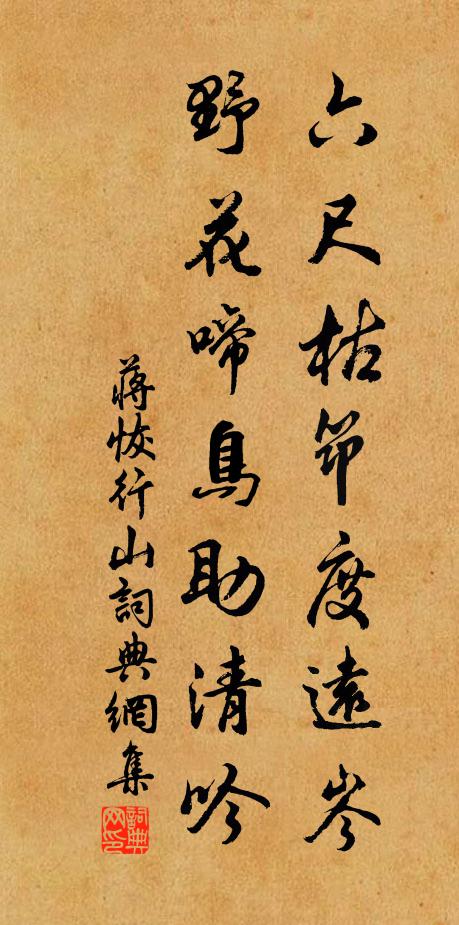 六尺枯笻度遠岑
野花啼鳥助清吟
蔣恢行山詞典網集
詞典网印